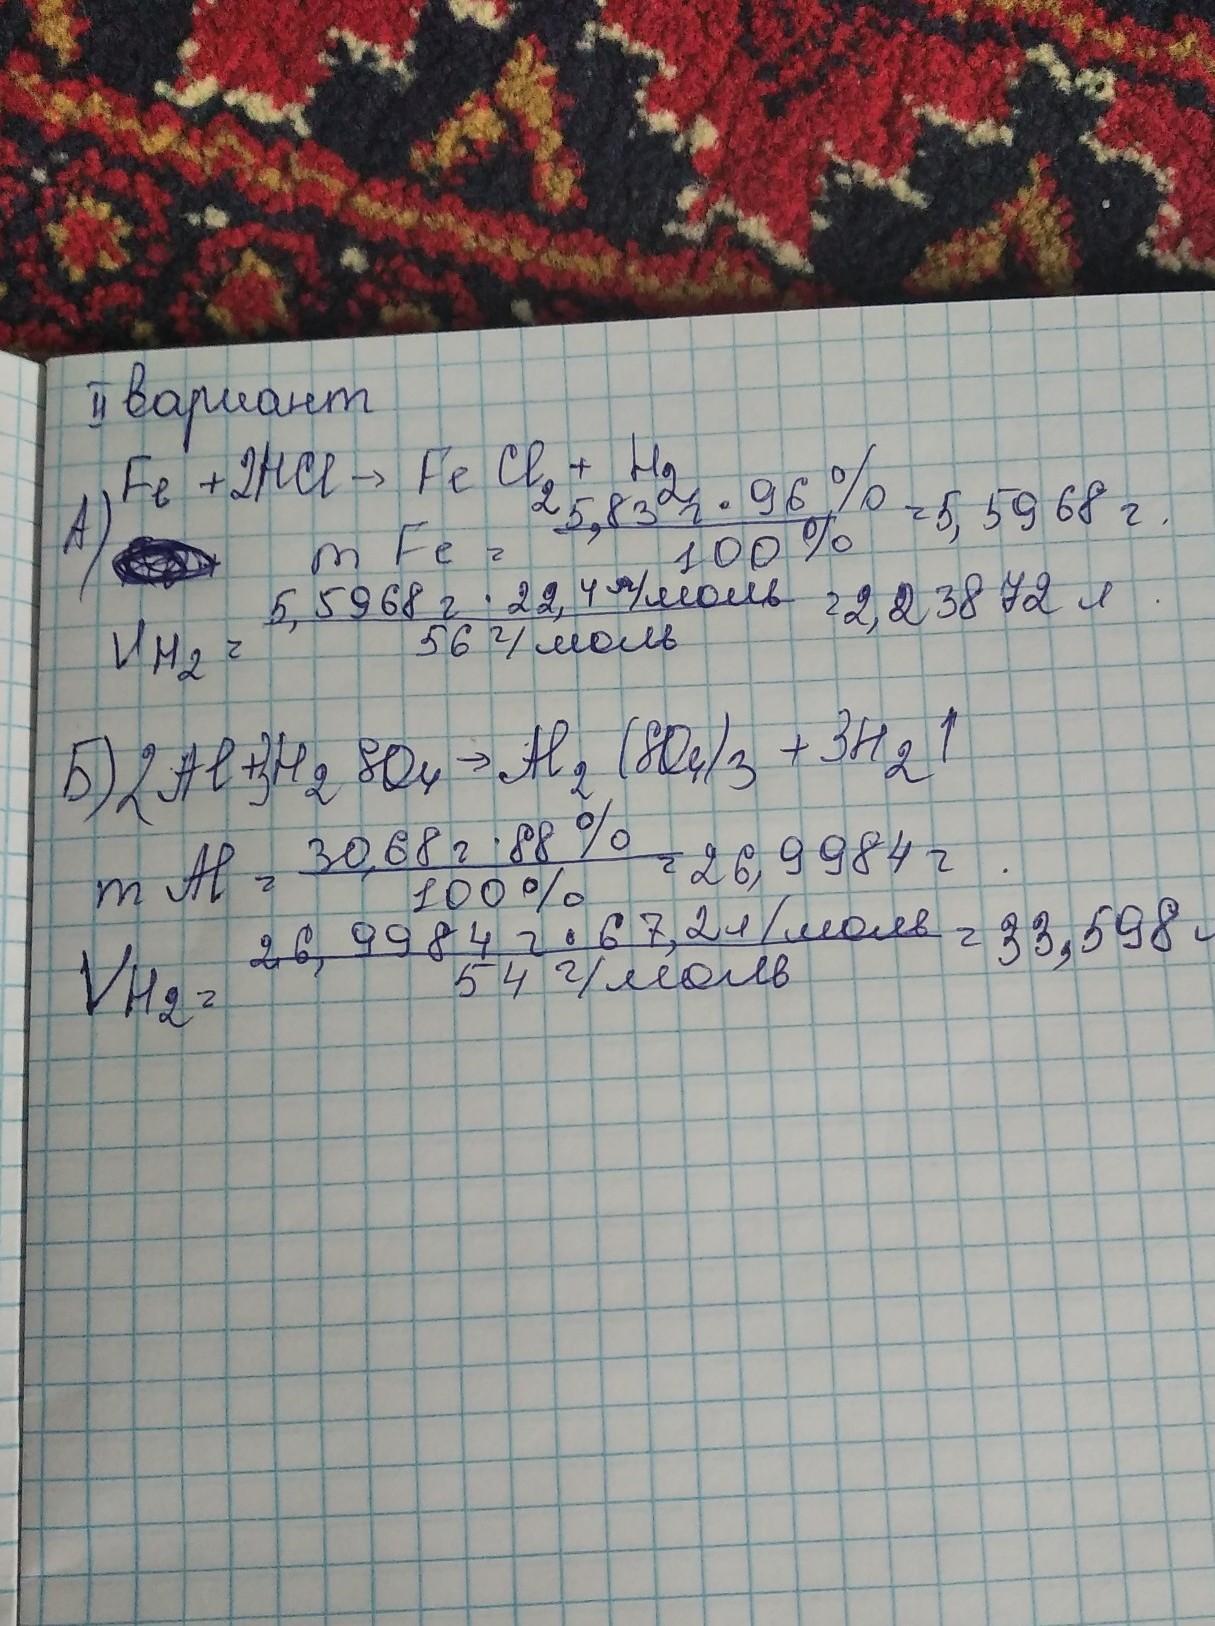 II вариант
А) Fe + 2HCl → FeCl2 + H2
m Fe = 5,83 г · 96 % / 100 % = 5,5968 г.
VH2 = 5,5968 г · 22,4 л/моль / 56 г/моль = 2,23872 л.
Б) 2Al + 3H2SO4 → Al2(SO4)3 + 3H2↑
m Al = 30,68 г · 88 % / 100 % = 26,9984 г.
VH2 = 26,9984 г · 67,2 л/моль / 54 г/моль = 33,598 л